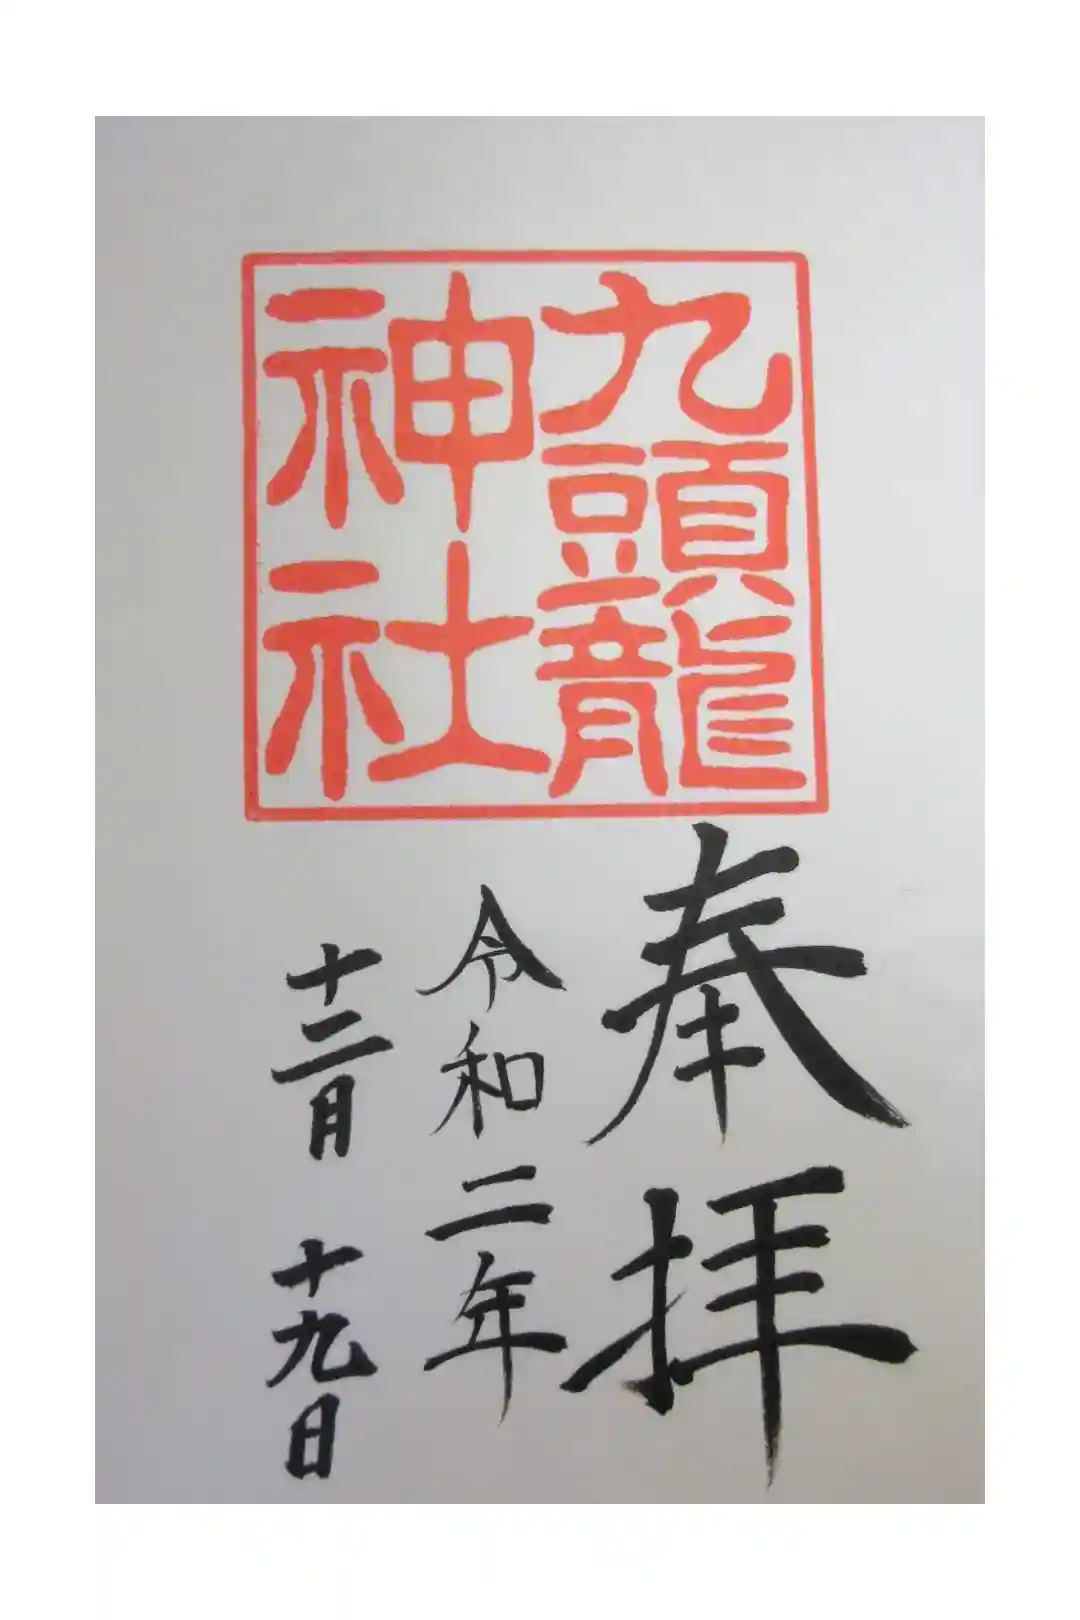 九頭龍
神社
奉拝
令和二年
十二月十九日